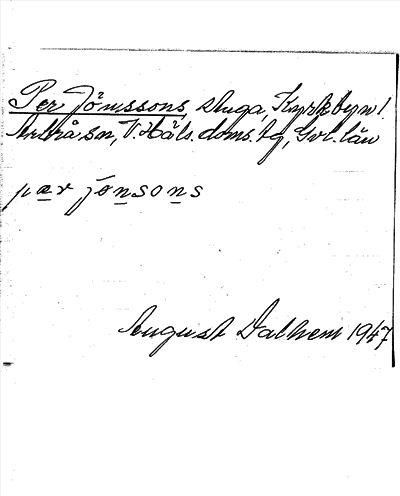 Per Jönssons, stuga, Kyrkbyn 1
Arbrå sn, V. Häls. doms. tg, Gvl. län
pær jonsons
August Dalhem 1947